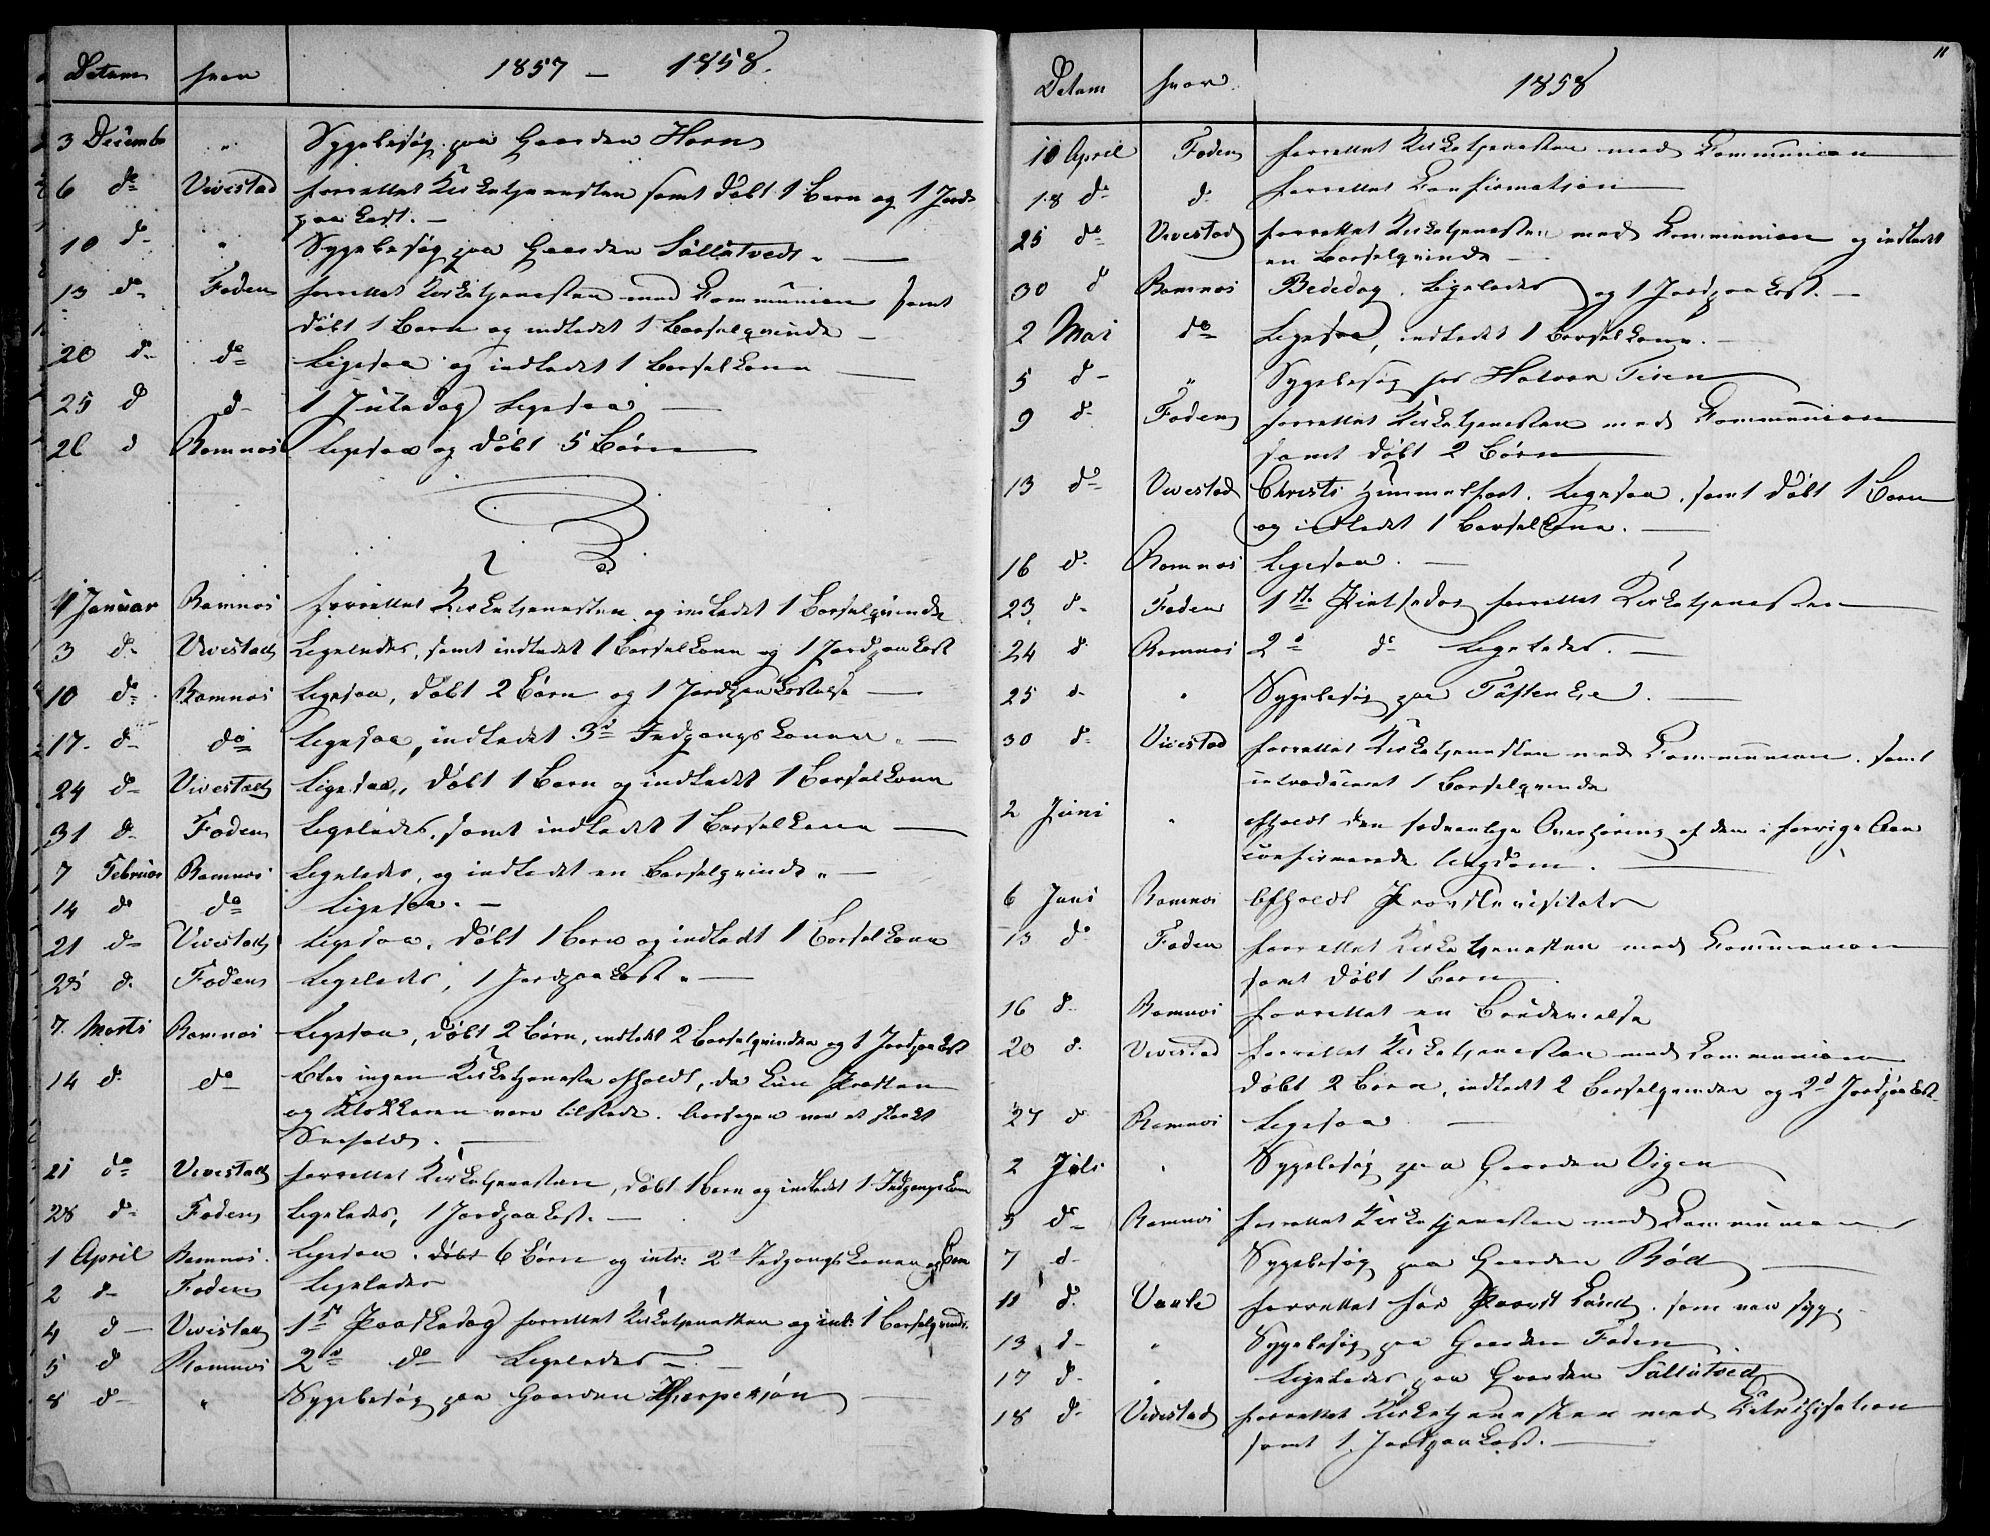 Datum hvor 1857 – 1858.
3 Decemb " Sygebesøg paa Gaarden Horn
6 do Vivestad forrettet Kirketjenesten samt døbt 1 Barn og 1 Jords
paakast. –
10 do " Sygebesøg paa Gaarden Sølløtved. –
13 do Foden forrettet Kirketjenesten med Communion samt
døbt 1 Barn og indledet 1 Barselqvinde –
20 do do Ligesaa og indledet 1 Barselkone –
25 d d- 1 Juledag Ligesaa –
26 d Ramnæs Ligesaa og døbt 5 Børn
1 Januar Ramnæs forrettet Kirketjenesten og indledet 1 Barselqvinde
3 d- Vivestad Ligeledes, samt indledet 1 Barselkone og 1 Jordpaakast
10 do Ramnæs Ligesaa, døbt 2 Børn og 1 Jordpaakastelse –
17. d- do Ligesaa, indledet 3de Indgangskoner. –
24 d- Vivestad Ligesaa, døbt 1 Barn og indledet 1 Barselkone
31 d- Foden Ligeledes, samt indledet 1 Barselkone –
7 Februar Ramnæs Ligeledes, og indledet en Barselqvinde " –
14 do do Ligesaa. –
21 do Vivestad Ligesaa, døbt 1 Barn og indledt 1 Barselkone
28 d. Foden Ligeledes, 1 Jordpaakast. –
7. Marts Ramnæs Ligesaa, døbt 2 Børn, indledt 2 Barselqvinder og 1 Jordpaakast
14 d. do Blev ingen Kirketjeneste afholdt, da kun Præsten
og Klokkeren vare tilstede. Aarsagen var et stærkt
Snefald. –
21 do Vivestad forrettet Kirketjenesten, døbt 1 Barn og indledet 1 Indgangskone
28 d- Foden Ligeledes, 1 Jordpaakast. –
1 April Ramnæs. Ligesaa. døbt 6 Børn og intr: 2de Indgangskoner
2 d- Foden Ligeledes
4 d – Vivestad 1ste Paaskedag forrettet Kirketjenesten og intr: 1 Barselqvinde.
5 d Ramnæs 2den do Ligeledes –
8 d- " Sygebesøg paa Gaarden Thorpesjøn –
11
Datum hvor. 1858
10 April Foden forrettet Kirketjenesten med Communion
18 do d. forrettet Confirmation
25 do Vivestad forrettet Kirketjenesten med Communion og indledet
en Barselqvinde –
30 d Ramnæs Bededag. Ligeledes og 1 Jordpaakast. –
2 Mai do Ligesaa, indledet 1 Barselkone. –
5 d- " Sygebesøg hos Halvor
9 d- Foden forrettet Kirketjenesten med Communion
samt døbt 2 Børn
13 do Vivestad Christi Himmelfart. Ligesaa. samt døbt 1 Barn
og indledet 1 Barselkone. –
16 d. Ramnæs Ligesaa. –
23 d- Foden 1ste Pintsedag forrettet Kirketjenesten
24 d. Ramnæs 2den do Ligeledes. –
25 d- " Sygebesøg paa –
30 d- Vivestad forrettet Kirketjenesten med Communion. samt
introduceret 1 Barselqvinde
2 Juni " afholdt den sædvanlige Overhøring af den i forrige Aar
confirmerede Ungdom. –
6 Juni Ramnæs Afholdt Provstevisitats
13 do Foden forrettet Kirketjenesten med Communion
samt døbt 1 Barn.
16 d- Ramnæs forrettet en Brudevielse
20 d. Vivestad forrettet Kirketjenesten med Communion
døbt 2 Børn, indledt 2 Barselqvinder og 2de Jordpaakast.
27 d Ramnæs Ligesaa –
2 Juli " Sygebesøg paa Gaarden Vigen
5 do Ramnæs forrettet Kirketjenesten med Communion
7 d- Sygebesøg paa Gaarden Rød –
11 d. Vaale forrettet for Provst Lund. som var syg. –
13 d- " Sygebesøg paa Gaarden Foden
17 d- " Ligeledes paa Gaarden Sølløtved
18 d- Vivestad forrettet Kirketjenesten med Katechisation
samt 1. Jordpaakast. –